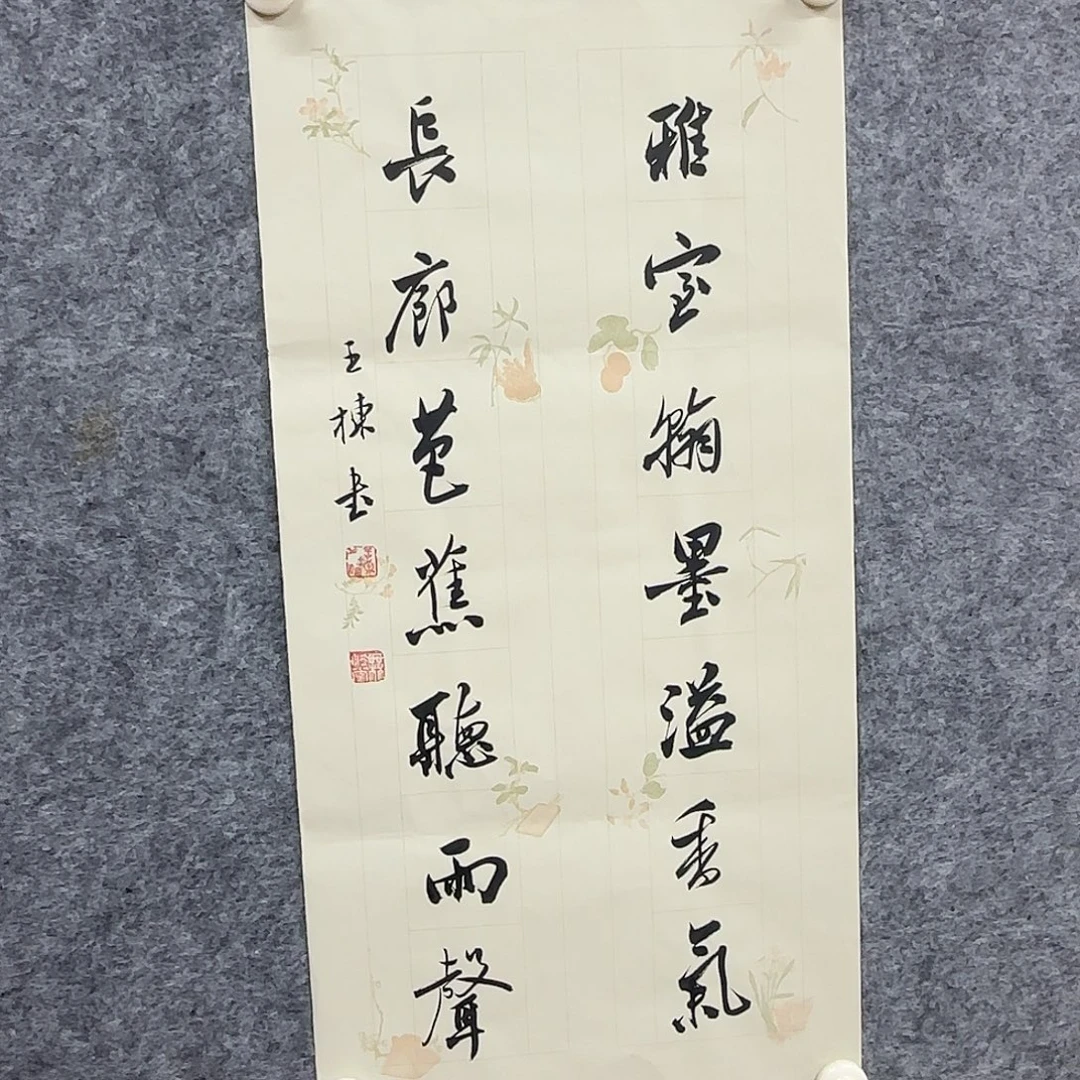 雅室翰墨溢香氣
長廊芭蕉聽雨聲
王棟书